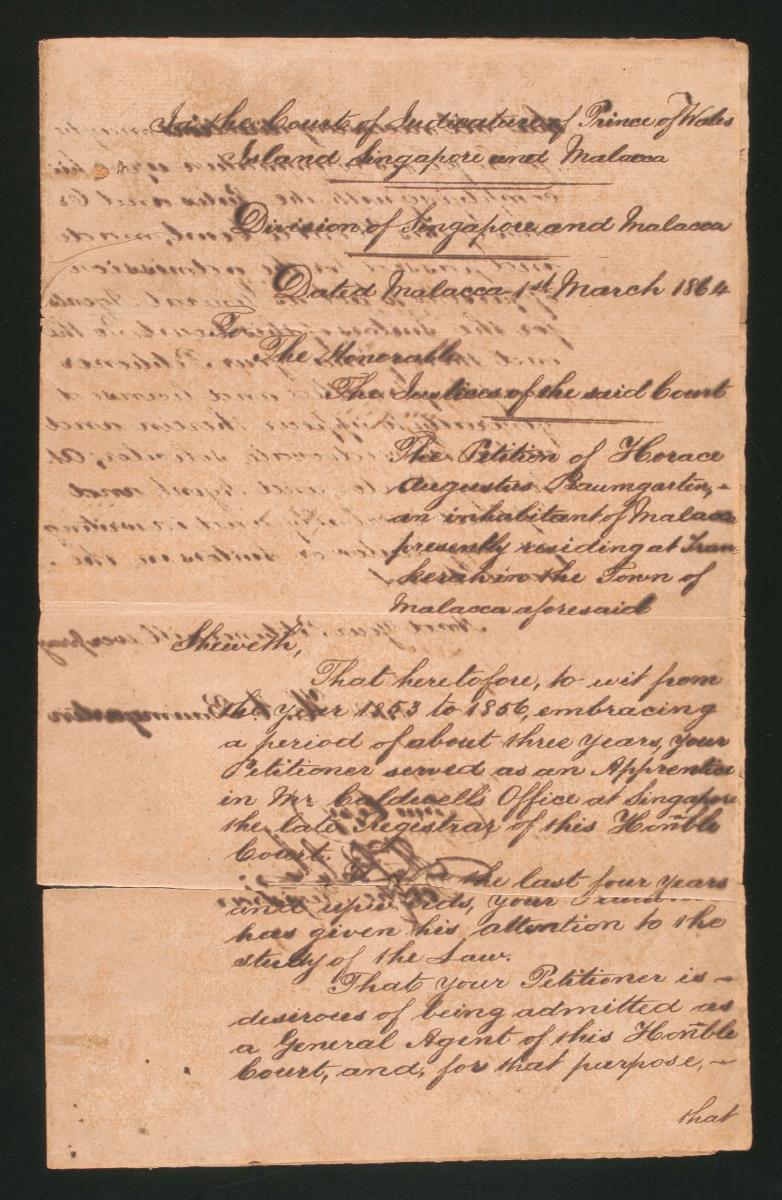 In the Court of Judicature of Prince of Wales
Island Singapore and Malacca
Division of Singapore and Malacca
Dated Malacca 1st March 1864
To
The Honorable
The Justices of the said Court
The Petition of Horace
Augustus Baumgarten,
an inhabitant of Malacca
presently residing at Tran-
kerah in the Town of
Malacca aforesaid
Sheweth,
That heretofore, to wit from
the year 1853 to 1856, embracing
a period of about three years, your
Petitioner served as an Apprentice
in Mr. Caldwell's Office at Singapore
the late Registrar of this Honble
Court.
the last four years
and upwards, your
has given his attention to the
study of the Law.
That your Petitioner is
desirous of being admitted as
a General Agent of this Honble
Court, and, for that purpose,
that